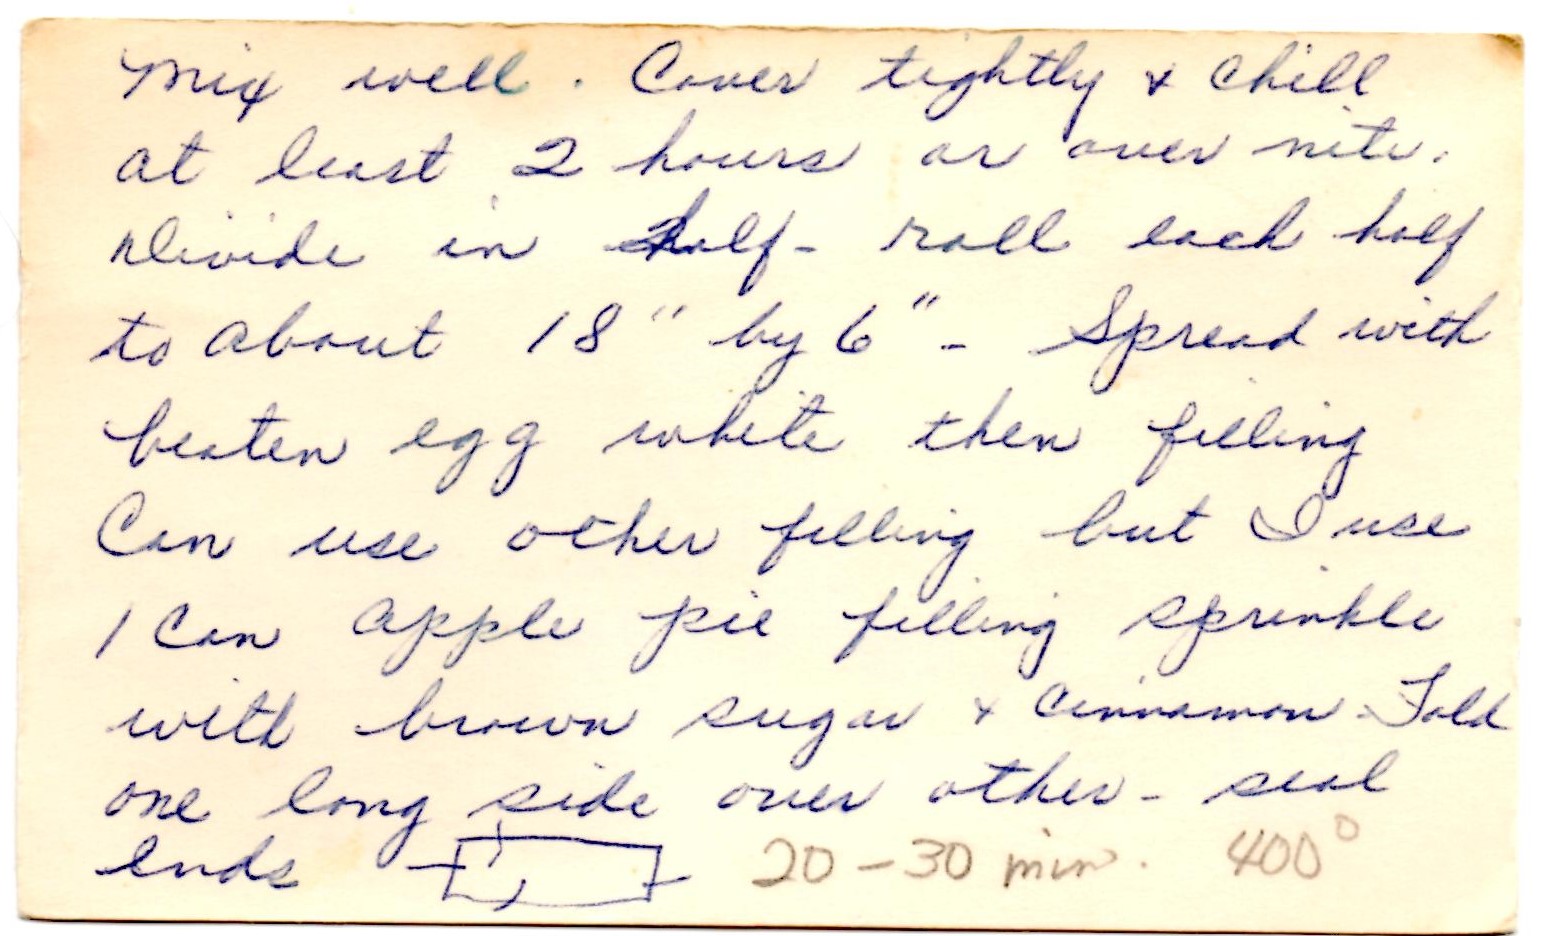 Mix well. Cover tightly & chill
at least 2 hours or over nite.
Divide in half - roll each half
to about 18" by 6" - Spread with
beaten egg white then filling
Can use other filling but I use
1 can apple pie filling sprinkle
with brown sugar & cinnamon - Fold
one long side over other - seal
ends 20 - 30 min. 400°